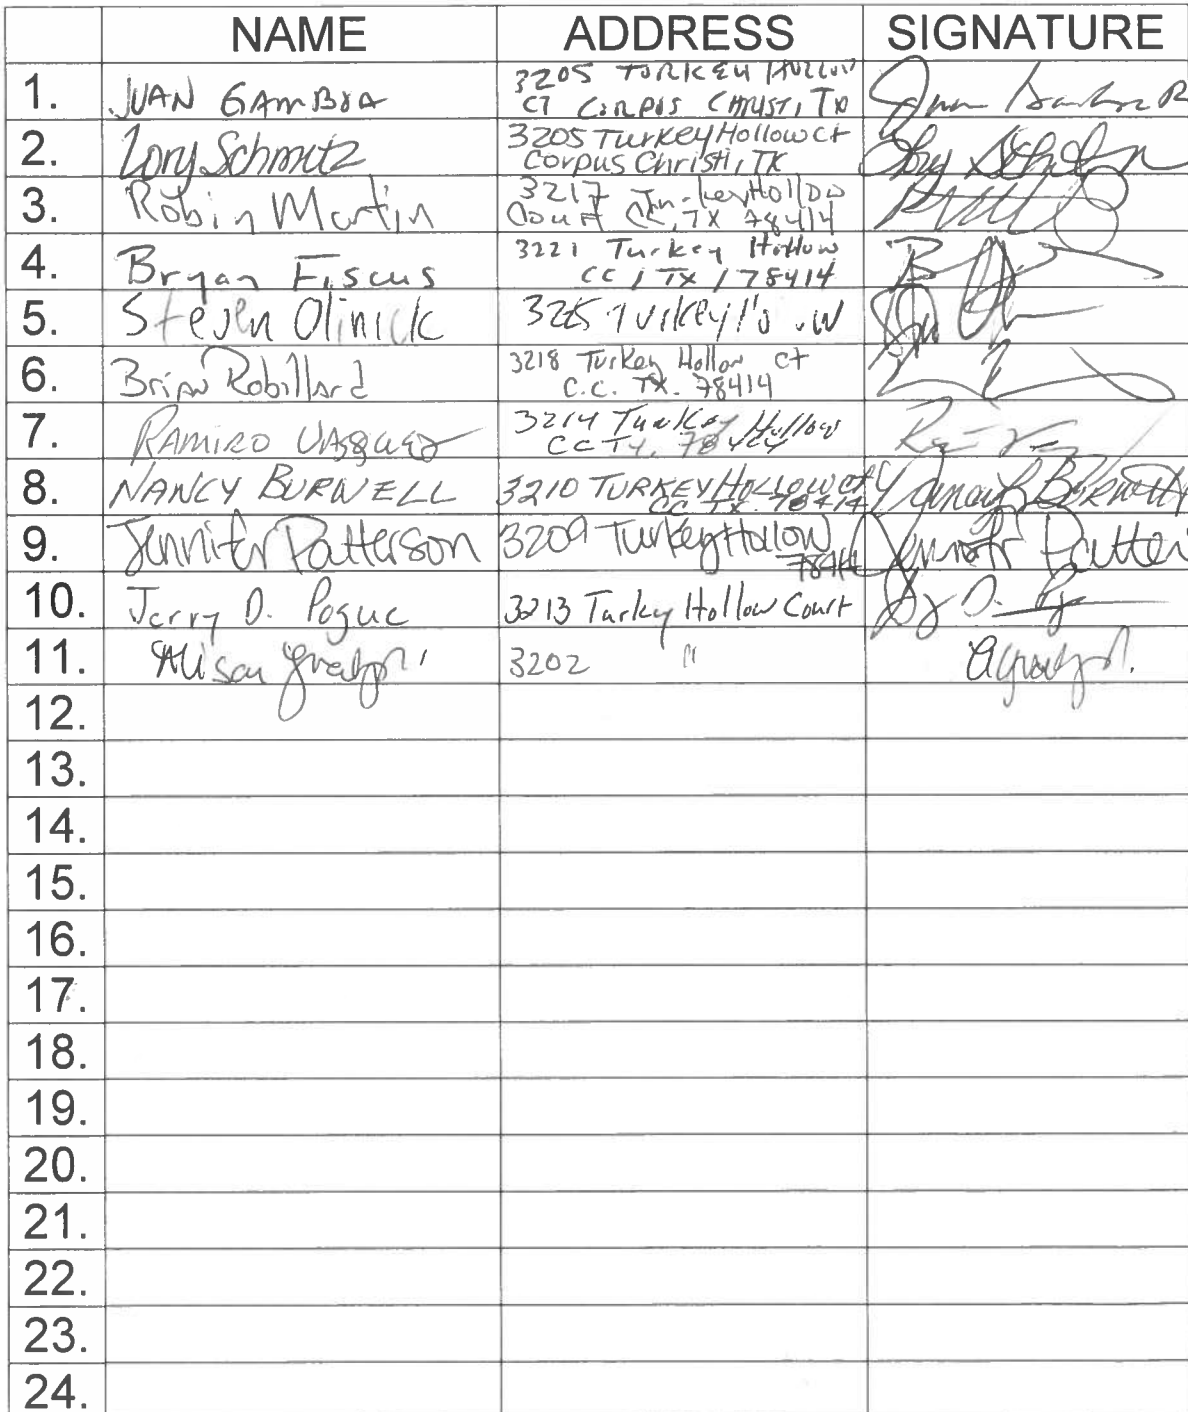 NAME ADDRESS SIGNATURE
1. JUAN GAMBOA 3205 TURKEY HOLLOW
CT CORPUS CHRISTI, TX
2. Lory Schmitz 3205 Turkey Hollow ct
Corpus Christi, TX
3. Robin Martin 3217 Turkey Hollow
Court CC, TX 78414
4. Bryan Fiscus 3221 Turkey Hollow
CC / TX / 78414
5. Steven Olinick Turkey
6. Brian Robillard 3218 Turkey Hollow ct
C.C. TX. 78414
7. RAMIRO VASQUEZ 3214 Turkey Hollow
CC TX. 78414
8. NANCY BURNELL 3210 TURKEY HOLLOW CT Nancy Burnell
CC TX 78414
9. Jennifer Patterson 3209 Turkey Hollow Jennifer Patter
78414
10. Jerry D. Pogue 3213 Turkey Hollow Court
11. Alison 3202 "
12.
13.
14.
15.
16.
17.
18.
19.
20.
21.
22.
23.
24.